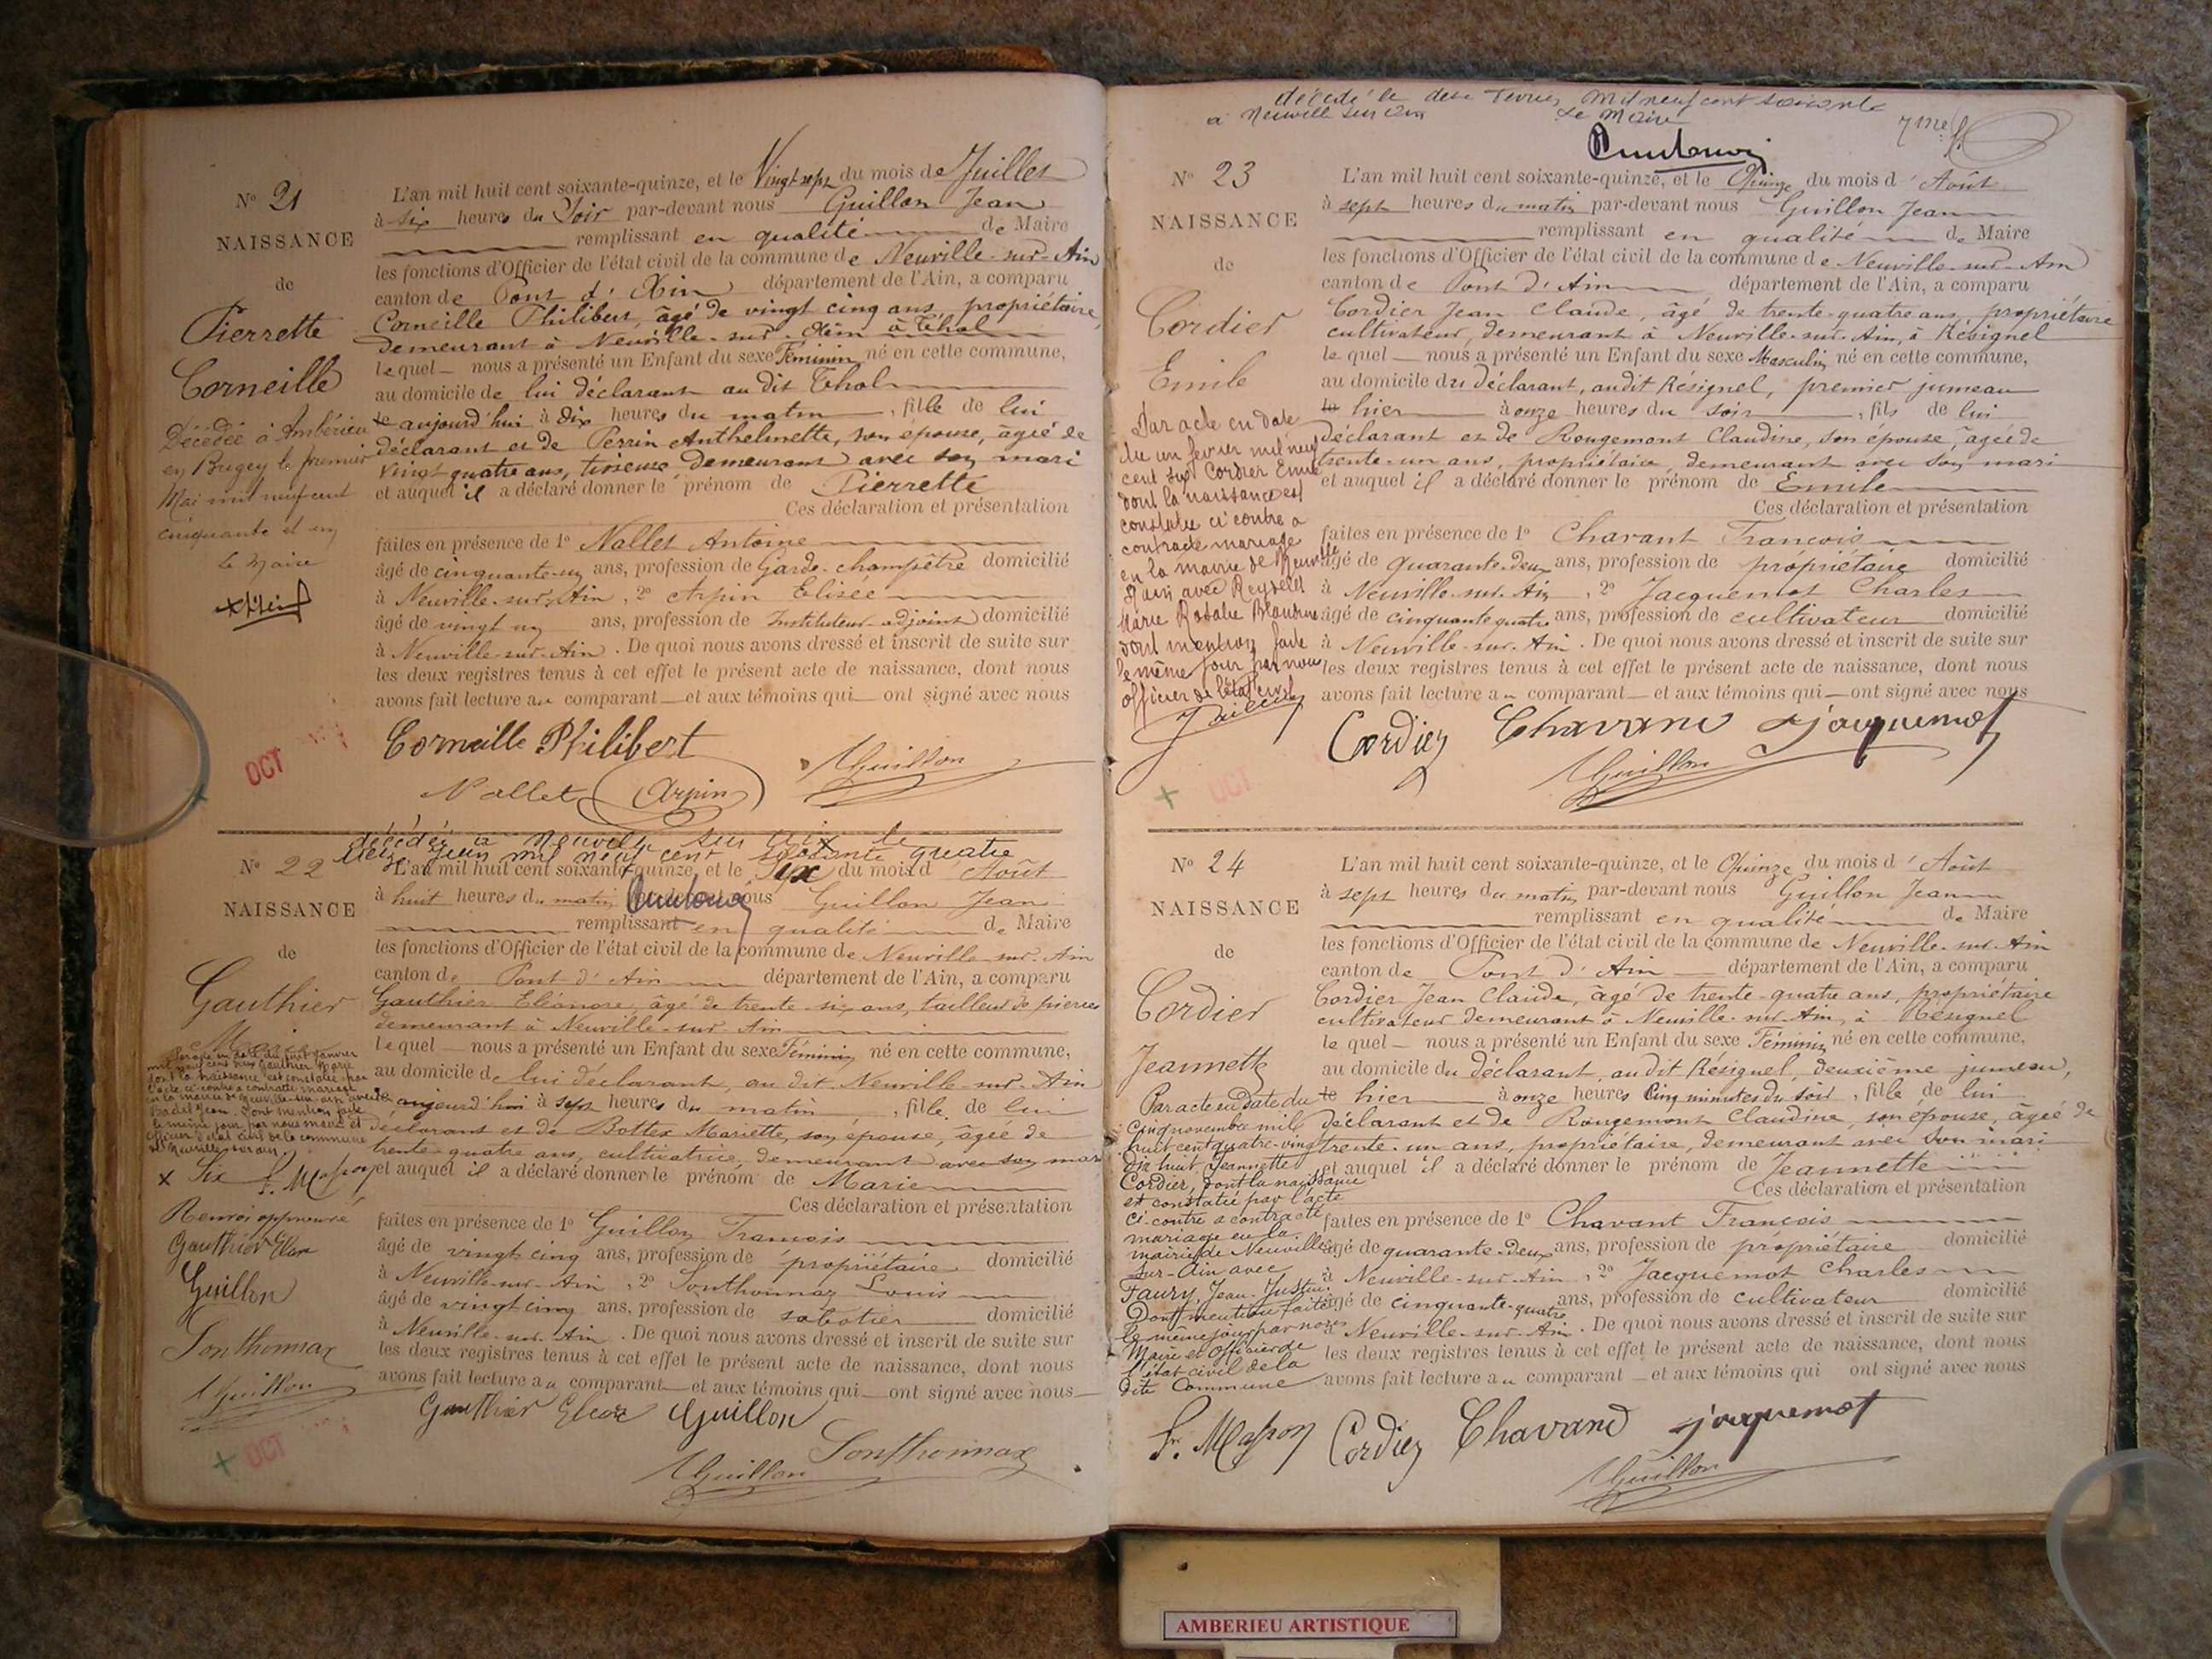 N° 21
NAISSANCE
de
Pierrette
Corneille
Décédée à Ambérieu
en Bugey le premier
Mai mil neuf cent
cinquante et un
le Maire
L'an mil huit cent soixante-quinze, et le Vingt sept du mois de Juillet
à six heures du Soir par-devant nous Guillon Jean
remplissant en qualité de Maire
les fonctions d'Officier de l'état civil de la commune de Neuville-sur-Ain
canton de Pont d'Ain département de l'Ain, a comparu
Corneille Philibert, âgé de vingt cinq ans, propriétaire,
demeurant à Neuville-sur-Ain à Thol
lequel nous a présenté un Enfant du sexe Féminin né en cette commune,
au domicile de lui déclarant au dit Thol
le aujourd'hui à dix heures du matin, fille de lui
déclarant et de Perrin Anthelmette, son épouse, âgée de
vingt quatre ans, tisseuse demeurant avec son mari
et auquel il a déclaré donner le prénom de Pierrette
Ces déclaration et présentation
faites en présence de 1° Nallet Antoine
âgé de cinquante-un ans, profession de Garde-champêtre domicilié
à Neuville-sur-Ain, 2° Arpin Elisée
âgé de vingt un ans, profession de Instituteur-adjoint domicilié
à Neuville-sur-Ain. De quoi nous avons dressé et inscrit de suite sur
les deux registres tenus à cet effet le présent acte de naissance, dont nous
avons fait lecture au comparant et aux témoins qui ont signé avec nous
OCT
Corneille Philibert
Nallet Arpin Guillon
décédée à Neuville sur Ain le
treize juin mil neuf cent soixante quatre
N° 22
NAISSANCE
de
Gauthier
Marie
Par acte en date du huit Janvier
mil neuf cent deux Gauthier Marie
dont la naissance est constatée par
l'acte ci-contre a contracté mariage
en la mairie de Neuville-sur-Ain avec
Badet Jean. Dont mention faite
le même jour par nous maire et
officier d'état civil de la commune
de Neuville sur Ain
x Six F. Masson
Renvoi approuvé
Gauthier Eléor
Guillon
Sonthonnax
Guillon
L'an mil huit cent soixante-quinze, et le Six du mois d'Août
à huit heures du matin par-devant nous Guillon Jean
remplissant en qualité de Maire
les fonctions d'Officier de l'état civil de la commune de Neuville-sur-Ain
canton de Pont d'Ain département de l'Ain, a comparu
Gauthier Eléonore, âgé de trente-six ans, tailleur de pierres
demeurant à Neuville-sur-Ain
lequel nous a présenté un Enfant du sexe Féminin né en cette commune,
au domicile de lui déclarant, au dit Neuville-sur-Ain
le aujourd'hui à sept heures du matin, fille de lui
déclarant et de Bottex Mariette, son épouse, âgée de
trente-quatre ans, cultivatrice, demeurant avec son mari
et auquel il a déclaré donner le prénom de Marie
Ces déclaration et présentation
faites en présence de 1° Guillon François
âgé de vingt cinq ans, profession de propriétaire domicilié
à Neuville-sur-Ain, 2° Sonthonnax Louis
âgé de vingt cinq ans, profession de sabotier domicilié
à Neuville-sur-Ain. De quoi nous avons dressé et inscrit de suite sur
les deux registres tenus à cet effet le présent acte de naissance, dont nous
avons fait lecture au comparant et aux témoins qui ont signé avec nous
+ OCT
Gauthier Eléor Guillon
Guillon Sonthonnax
décédé le deux Février Mil neuf cent soixante
à Neuville sur Ain Le Maire
7me f.
N° 23
NAISSANCE
de
Cordier
Emile
Par acte en date
du un fevrier mil neuf
cent six Cordier Emile
dont la naissance est
constatée ci contre a
contracté mariage
en la mairie de Neuville
s/ ain avec Reydellet
Marie Rosalie Blandine
dont mention faite
le même jour par nous
officier de l'état civil
L'an mil huit cent soixante-quinze, et le Quinze du mois d'Août
à sept heures du matin par-devant nous Guillon Jean
remplissant en qualité de Maire
les fonctions d'Officier de l'état civil de la commune de Neuville-sur-Ain
canton de Pont d'Ain département de l'Ain, a comparu
Cordier Jean Claude, âgé de trente-quatre ans, propriétaire
cultivateur, demeurant à Neuville-sur-Ain, à Résignel
lequel nous a présenté un Enfant du sexe Masculin né en cette commune,
au domicile du déclarant, audit Résignel, premier jumeau
le hier à onze heures du soir, fils de lui
déclarant et de Rougemont Claudine, son épouse, âgée de
trente-un ans, propriétaire, demeurant avec son mari
et auquel il a déclaré donner le prénom de Emile
Ces déclaration et présentation
faites en présence de 1° Chavant François
âgé de quarante-deux ans, profession de propriétaire domicilié
à Neuville-sur-Ain, 2° Jacquemot Charles
âgé de cinquante quatre ans, profession de cultivateur domicilié
à Neuville-sur-Ain. De quoi nous avons dressé et inscrit de suite sur
les deux registres tenus à cet effet le présent acte de naissance, dont nous
avons fait lecture au comparant et aux témoins qui ont signé avec nous
Cordier Chavant Jacquemot
Guillon
+ OCT
N° 24
NAISSANCE
de
Cordier
Jeannette
Par acte en date du
cinq novembre mil
huit cent quatre-vingt
dix huit, Jeannette
Cordier, dont la naissance
est constatée par l'acte
ci-contre a contracté
mariage en la
mairie de Neuville
sur-Ain avec
Faury, Jean-Justin.
Dont mention faite
le même jour par nous
Maire et Officier de
l'état civil de la
dite Commune
L'an mil huit cent soixante-quinze, et le Quinze du mois d'Août
à sept heures du matin par-devant nous Guillon Jean
remplissant en qualité de Maire
les fonctions d'Officier de l'état civil de la commune de Neuville-sur-Ain
canton de Pont d'Ain département de l'Ain, a comparu
Cordier Jean Claude, âgé de trente-quatre ans, propriétaire
cultivateur demeurant à Neuville-sur-Ain, à Résignel
lequel nous a présenté un Enfant du sexe Féminin né en cette commune,
au domicile du déclarant, audit Résignel, deuxième jumeau,
le hier à onze heures cinq minutes du soir, fille de lui
déclarant et de Rougemont Claudine, son épouse, âgée de
trente-un ans, propriétaire, demeurant avec son mari
et auquel il a déclaré donner le prénom de Jeannette
Ces déclaration et présentation
faites en présence de 1° Chavant François
âgé de quarante-deux ans, profession de propriétaire domicilié
à Neuville-sur-Ain, 2° Jacquemot Charles
âgé de cinquante-quatre ans, profession de cultivateur domicilié
à Neuville-sur-Ain. De quoi nous avons dressé et inscrit de suite sur
les deux registres tenus à cet effet le présent acte de naissance, dont nous
avons fait lecture au comparant et aux témoins qui ont signé avec nous
F. Masson Cordier Chavant Jacquemot
Guillon
AMBERIEU ARTISTIQUE